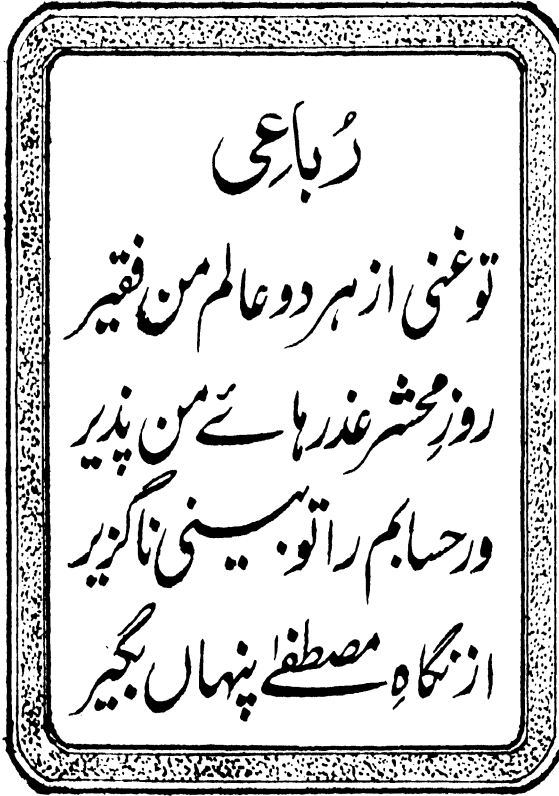 رُباعِی
تو غنی از ہر دو عالم من فقیر
روزِ محشر عذر ہائے من پذیر
ور حسابم را تو بینی ناگزیر
از نگاہِ مصطفےٰ پنہاں بگیر